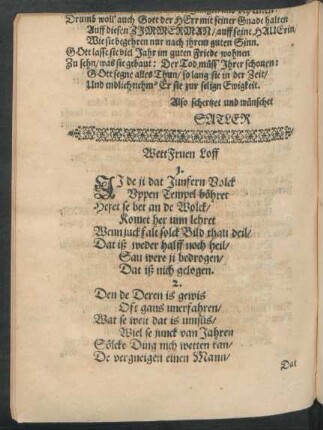 Drumb woll' auch Gott der HErr mit seiner Gnade halten
Auff diesen ZIMMERMAN / auff seine HAUErin /
Wie sie begehren nur nach ihrem guten Sinn.
GOtt lasse sie viel Jahr im guten Friede wohnen
Zu sehn / was sie gebaut: Der Tod müss' Ihrer schonen:
GOtt segne alles Thun / so lang sie in der Zeit /
Und endlich nehm' Er sie zur selign Ewigkeit.
Also schertzet und wünschet
SATLER
Wett Fruen Loff
1.
JJ de ji dat Junfern Volck
Uppen Tempel böhret
Hetet se bet an de Wolck /
Komet her unn lehret
Wenn juck falt solck Bild thau deil /
Dat iß weder halff noch heil /
Sau were ji bedrogen /
Dat iß nich gelogen.
2.
Den de Deren is gewis
Oft gans unerfahren /
Wat se weit dat is umsüs /
Wiel se junck van Jahren
Sölcke Ding nich wetten kan /
De vergneigen einen Mann /
Dat